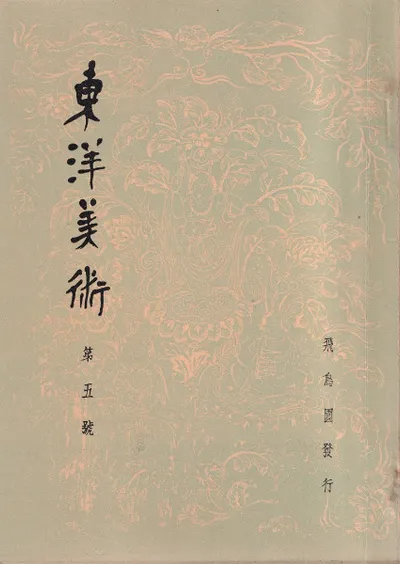 東洋美術
第五號
飛鳥園發行